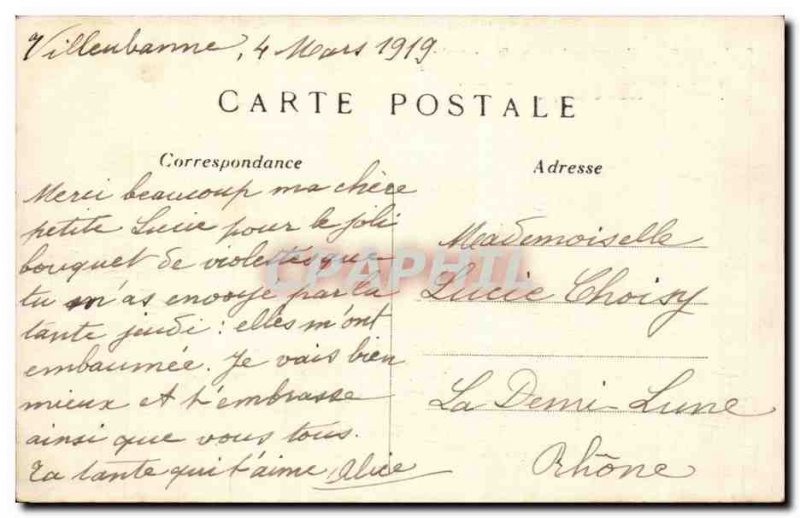 Villeurbanne, 4 Mars 1919
CARTE POSTALE
Correspondance
Merci beaucoup ma chère
petite Lucie pour le joli
bouquet de violettes que
tu m'as envoyé par ta
tante jeudi : elles m'ont
embaumée. Je vais bien
mieux et t'embrasse
ainsi que vous tous.
Ta tante qui t'aime Alice
Adresse
Mademoiselle
Lucie Choisy
La Demi-Lune
Rhône
CPAPHIL